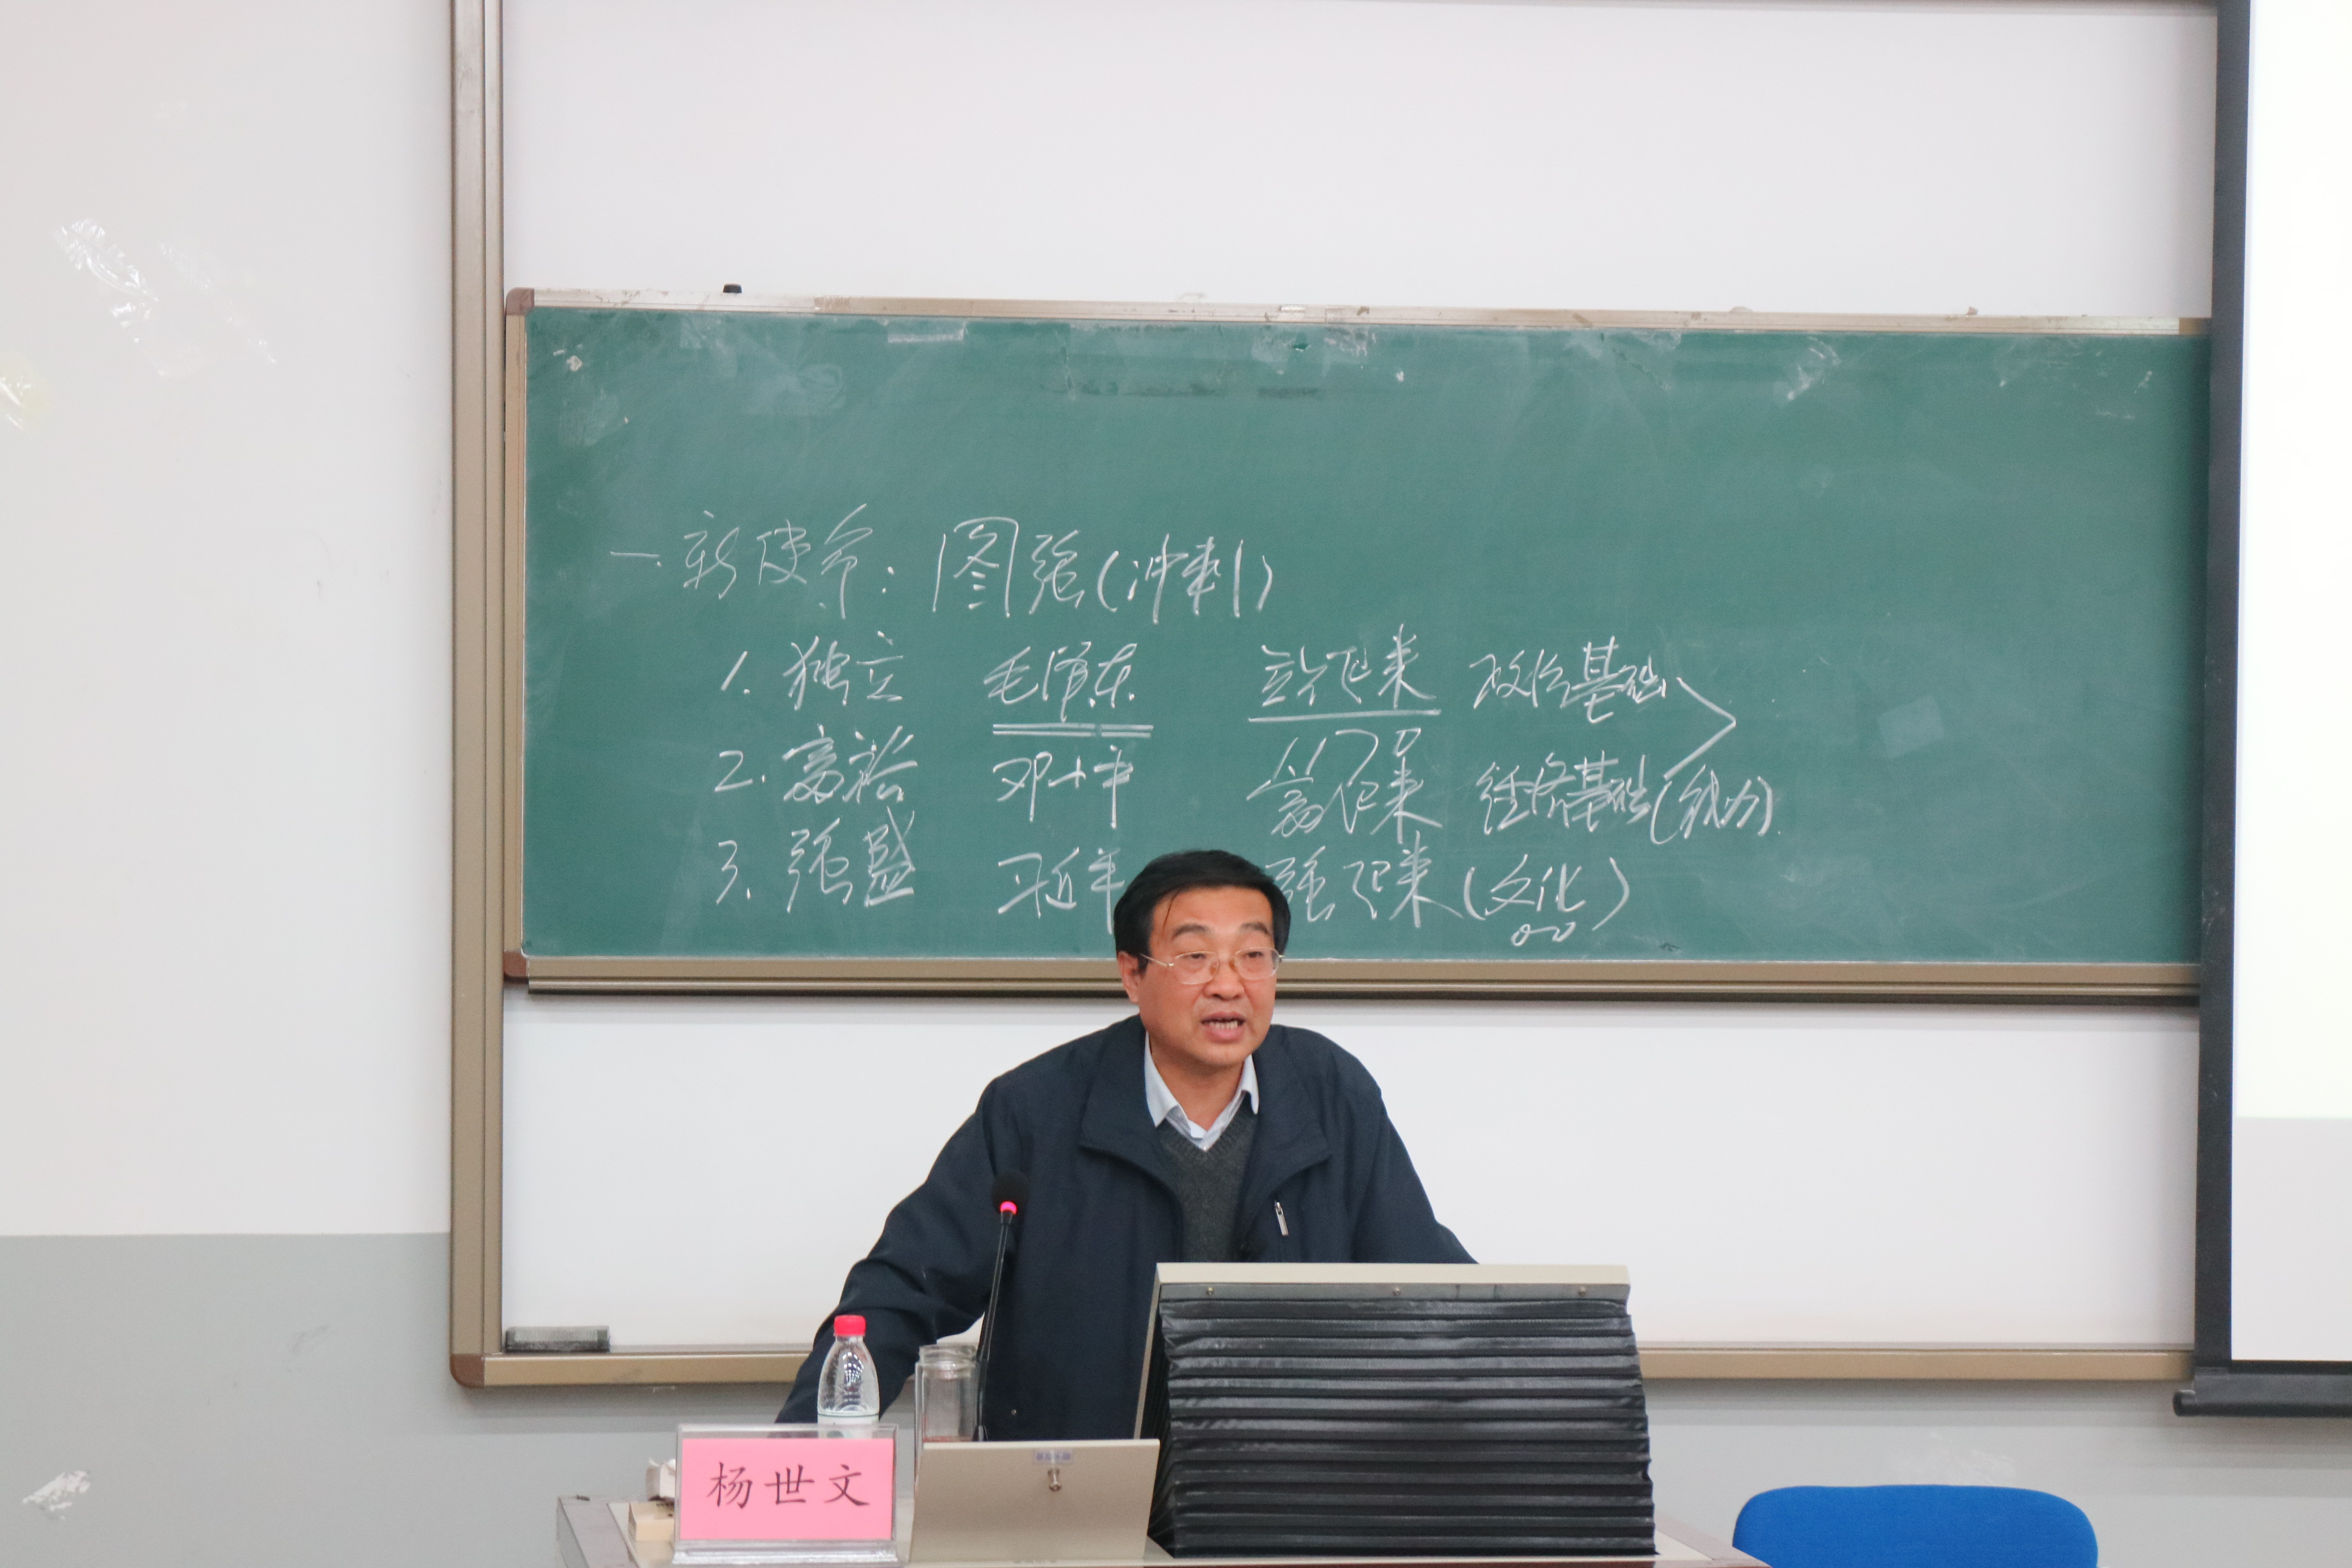 一.新使命:图强(冲刺)
1.独立 毛泽东 站起来 政治基础
2.富裕 邓小平 富起来 经济基础(钱力)
3.强盛 习近平 强起来(文化)
杨世文